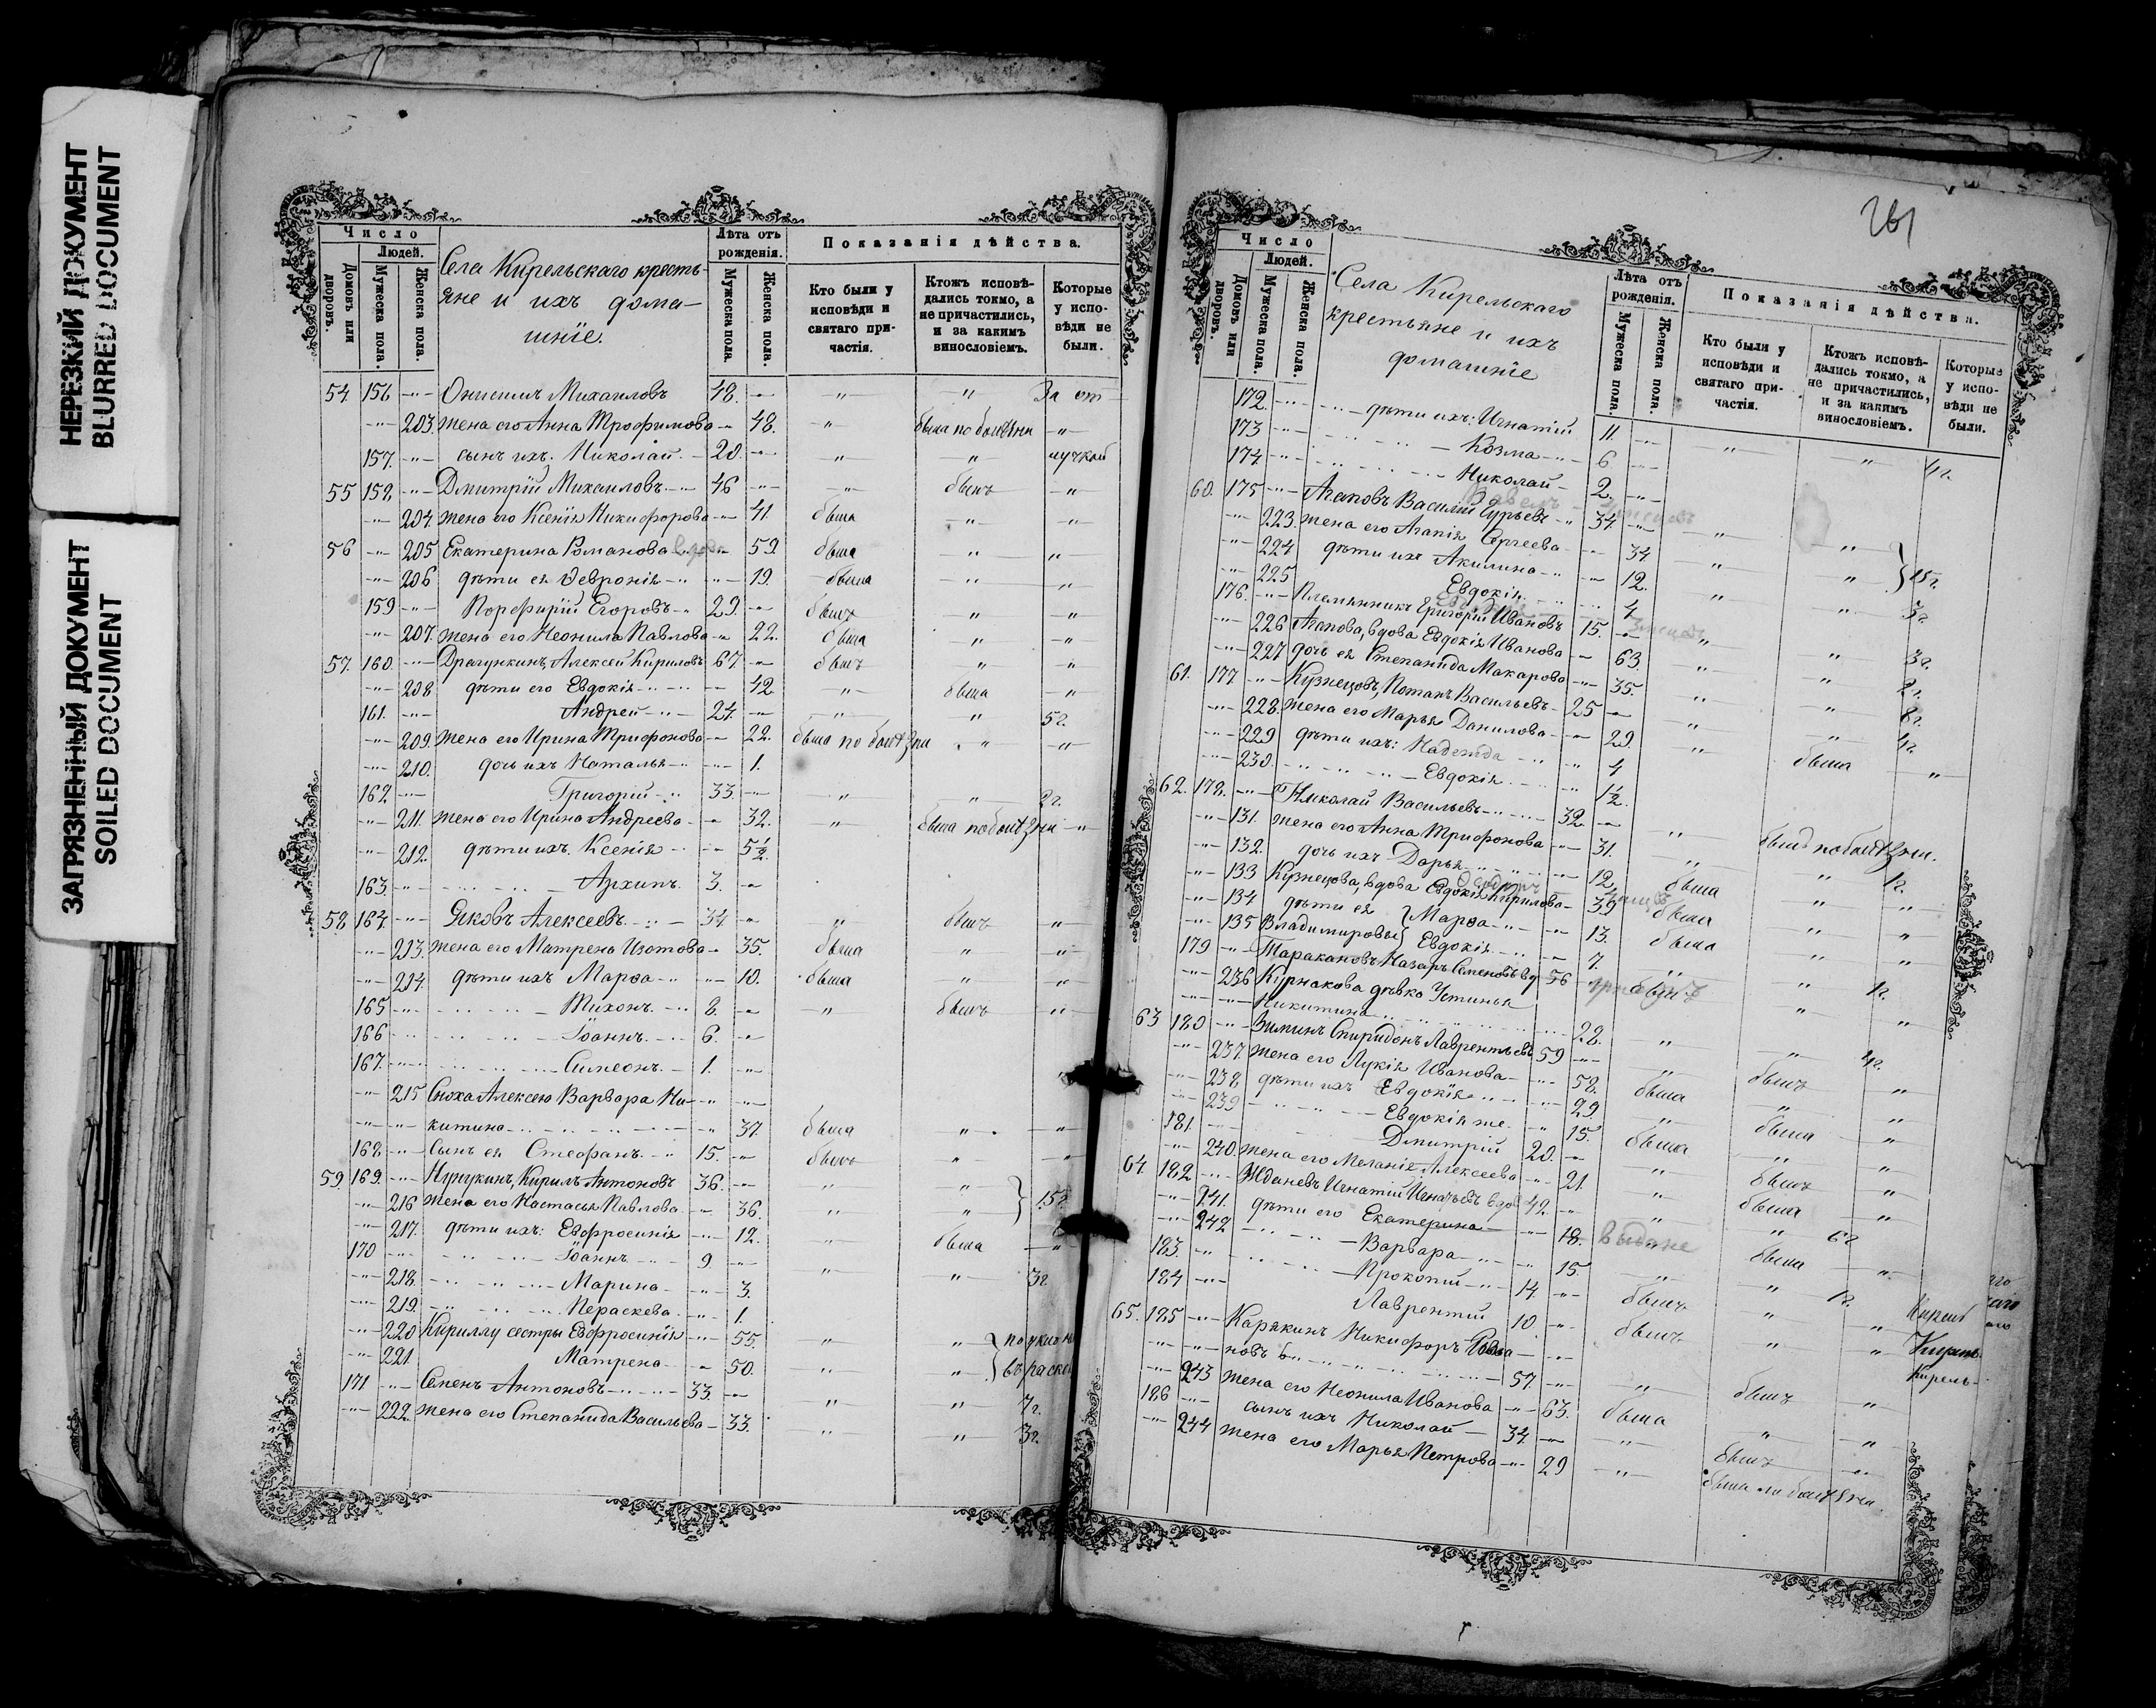 НЕРЕЗКИЙ ДОКУМЕНТ
BLURRED DOCUMENT
ЗАГРЯЗНЕННЫЙ ДОКУМЕНТ
SOILED DOCUMENT
Число
Людей.
Домовъ или дворовъ.
Мужеска пола.
Женска пола.
Села Кирельскаго кресть-
яне и ихъ дома-
шніе.
Лѣта отъ рожденія.
Мужеска пола.
Женска пола.
Показанія дѣйства.
Кто были у исповѣди и святаго при-частія.
Ктожъ исповѣ-дались токмо, а не причастились, и за какимъ винословіемъ.
Которые у испо-вѣди не были.
54. 156 -"- Онисимъ Михаиловъ 48. -"- " " За от-
-"- 203. жена его Анна Трофимова -"- 48. " была по болѣзни "
157. -"- сынъ ихъ. Николай 20. -"- " " лучкой
55 158. -"- Дмитрій Михаиловъ 46 -"- " былъ "
-"- 204. жена его Ксенія Никифорова -"- 41. была " "
56 -"- 205 Екатерина Романова вдова 59. была " "
-"- 206 дѣти ея Февронія -"- 19. была " "
159 -"- Порфирій Егоровъ 29. -"- былъ " "
-"- 207. жена его Неонила Павлова -"- 22. была " "
57. 160 -"- Драгункинъ, Алексей Кириловъ 67 -"- былъ " "
-"- 208 дѣти его Евдокія -"- 42. " была "
161. -"- Андрей 24. -"- " " 5 г.
-"- 209. жена его Ирина Трифонова -"- 22. была по болѣзни " "
-"- 210. дочь ихъ Наталья -"- 1.
162. -"- Григорій 33. -"- " " 2 г.
-"- 211. жена его Ирина Андреева -"- 32. " была по болѣзни "
-"- 212. дѣти ихъ. Ксенія -"- 5½
163. -"- Архипъ. 3. -"-
58 164. -"- Яковъ Алексеевъ 34 -"- " былъ "
-"- 213. жена его Матрена Изотова -"- 35. была " "
-"- 214. дѣти ихъ Марѳа -"- 10. была " "
165 -"- Тихонъ. 8. -"- " былъ "
166 -"- Іоаннъ. 6. -"-
167. -"- Симеонъ. 1. -"-
-"- 215 Сноха Алексею Варвара Ни-
китина 37. была " "
168. -"- Сынъ ея Стефанъ. 15. -"- былъ " "
59. 169. -"- Кирилъ Антоновъ 36. -"- " " 15 г.
-"- 216 жена его Настасья Павлова -"- 36. " "
-"- 217. дѣти ихъ: Евфросинія -"- 12. " была "
170 -"- Іоаннъ 9. -"- " " 3 г.
-"- 218. Марина -"- 3.
-"- 219. Параскева -"- 1.
-"- 220 Кириллу сестры Евфросинія -"- 55. " "
-"- 221. Матрена -"- 50. " "
171 -"- Семенъ Антоновъ 33. -"- " " 7 г.
-"- 222. жена его Степанида Васильева -"- 33. " " 3 г.
261
Число
Людей.
Домовъ или дворовъ.
Мужеска пола.
Женска пола.
Села Кирельскаго
крестьяне и ихъ
домашніе
Лѣта отъ рожденія.
Мужеска пола.
Женска пола.
Показанія дѣйства.
Кто были у исповѣди и святаго при-частія.
Ктожъ исповѣ-дались токмо, а не причастились, и за какимъ винословіемъ.
Которые у испо-вѣди не были.
172. -"- дѣти ихъ: Игнатій 11. -"- " " 4 г.
173 -"- Козма 6. -"-
174. -"- Николай 2. -"-
60. 175 -"- Агаповъ Василій Гурьевъ 34. -"- " " 15 г.
-"- 223. жена его Агапія Сергеева -"- 34. " "
-"- 224 дѣти ихъ Акилина -"- 12. " " 3 г.
-"- 225 Евдокія -"- 4
176. -"- Племянникъ Григорій Ивановъ 15. -"- " " 3 г.
-"- 226 Агапова, вдова Евдокія Иванова -"- 63. " " 2 г.
-"- 227 дочь ея Степанида Макарова -"- 35. " " 8 г.
61. 177 -"- Кузнецовъ, Потапъ Васильевъ 25 -"- " " 4 г.
-"- 228. жена его Марья Данилова -"- 29. " была "
-"- 229 дѣти ихъ: Надежда -"- 4
-"- 230. Евдокія -"- 1½.
62. 178. -"- Николай Васильевъ 32 -"- " былъ по болѣзни.
-"- 131. жена его Анна Трифонова -"- 31. " " 1 г.
-"- 132. дочь ихъ Дарья -"- 12. была " "
-"- 133 Кузнецова, вдова Евдокія Кирилова 39 была " "
-"- 134 дѣти ея Марѳа -"- 13. была " "
-"- 135 Владимировы Евдокія -"- 7. "
179 -"- Таракановъ Назаръ Семеновъ вд 56 -"- " " 1 г.
-"- 236 Курнакова дѣвка Устинья
Никитина 28. " " 4 г.
63 180 -"- Зиминъ Спиридонъ Лаврентьевъ 59 -"- " былъ "
-"- 237 жена его Лукія Иванова -"- 58. была " "
-"- 238 дѣти ихъ Евдокія -"- 29. " была "
-"- 239 Евдокія же. -"- 15. была " "
181. -"- Дмитрій 20. -"- " былъ "
-"- 240. жена его Меланія Алексеева -"- 21. " была "
64. 182 -"- Ждановъ Игнатій Игнатьевъ вдов 42. -"- " " 6 г.
-"- 241. дѣти его Екатерина -"- 18. выдана была "
-"- 242 Варвара -"- 15. " " 1 г.
183. -"- Прокопій 14. -"- былъ " "
184 -"- Лаврентій 10. -"- былъ " "
65. 185 -"- Карякинъ Никифоръ
новъ 57. -"- " былъ "
-"- 243 жена его Неонила Иванова -"- 63. была " "
186 -"- сынъ ихъ Николай 34. -"- " былъ "
-"- 244 жена его Марья Петрова -"- 29 " была по болѣзни.